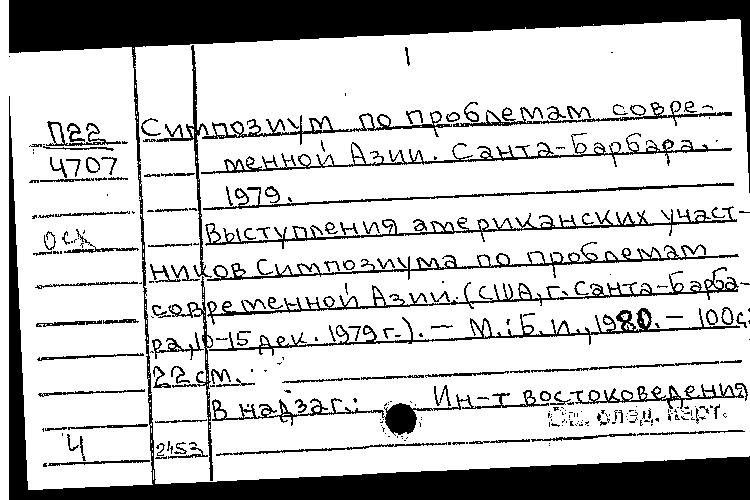 1
П22
4707
оск
Симпозиум по проблемам совре-
менной Азии. Санта-Барбара.
1979.
Выступления американских участ-
ников Симпозиума по проблемам
современной Азии. (США, г. Санта-Барба-
ра, 10-15 дек. 1979 г.). — М.: Б. и., 1980. — 100с.;
22 см.
В надзаг.: Ин-т востоковедения
См. след. карт.
Ч
2453